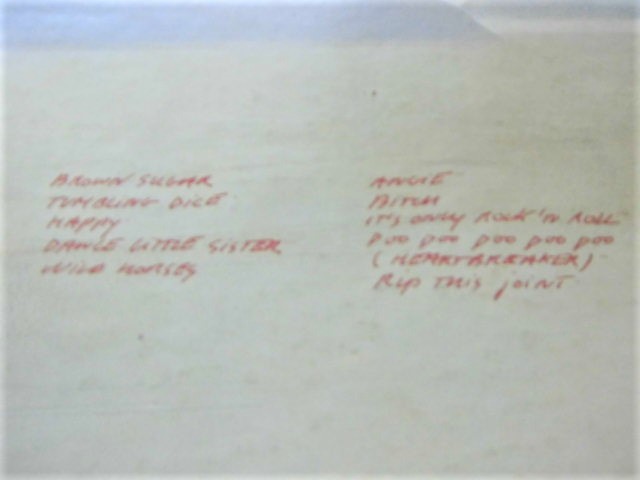 BROWN SUGAR
TUMBLING DICE
HAPPY
DANCE LITTLE SISTER
WILD HORSES
ANGIE
BITCH
IT'S ONLY ROCK 'N ROLL
DOO DOO DOO DOO DOO
(HEARTBREAKER)
RIP THIS JOINT